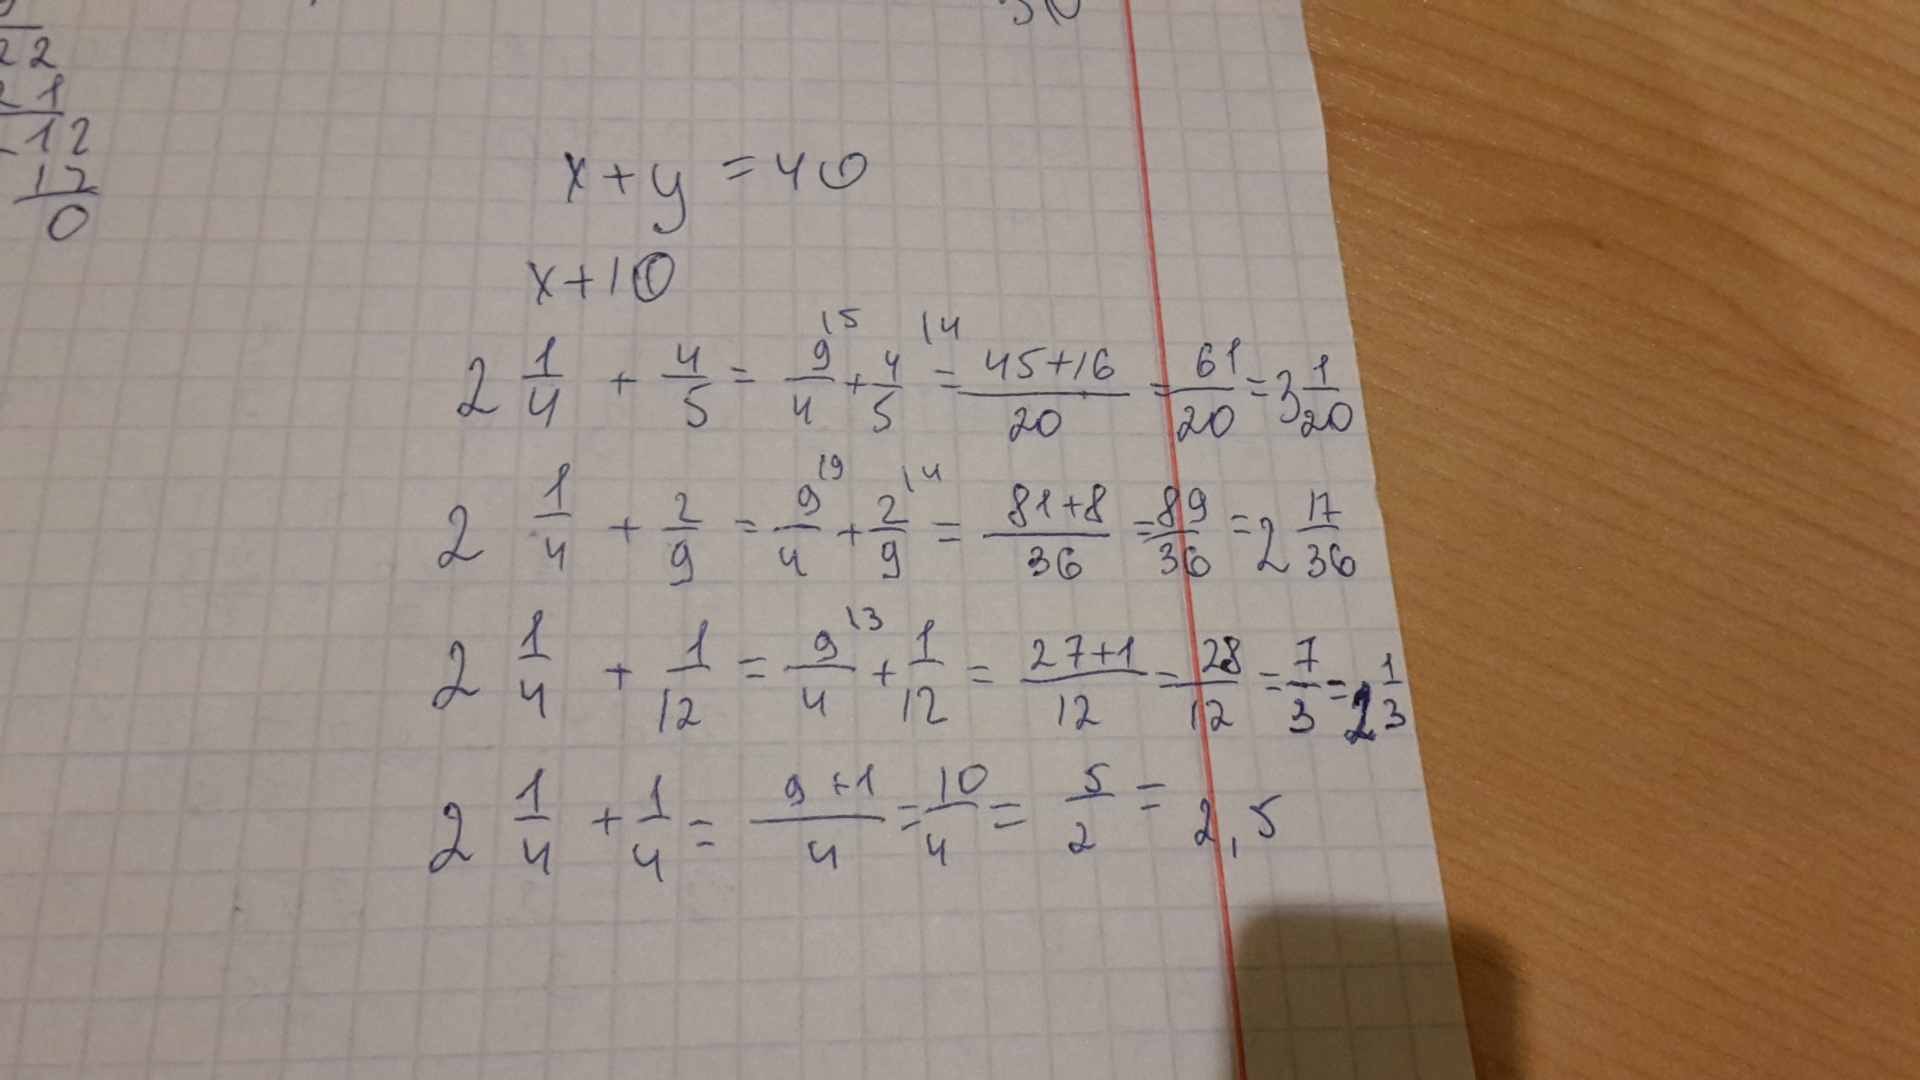 22
21
12
12
0
x + y = 40
x + 10
2 1/4 + 4/5 = 9/4 \5 + 4/5 \4 = 45+16/20 = 61/20 = 3 1/20
2 1/4 + 2/9 = 9/4 \9 + 2/9 \4 = 81+8/36 = 89/36 = 2 17/36
2 1/4 + 1/12 = 9/4 \3 + 1/12 = 27+1/12 = 28/12 = 7/3 = 2 1/3
2 1/4 + 1/4 = 9+1/4 = 10/4 = 5/2 = 2,5